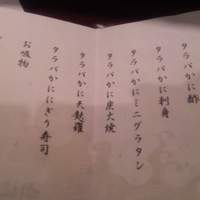 タラバかに酢
タラバかに刺身
タラバかにミニグラタン
タラバかに炭火焼
タラバかに天麩羅
タラバかににぎり寿司
お吸物